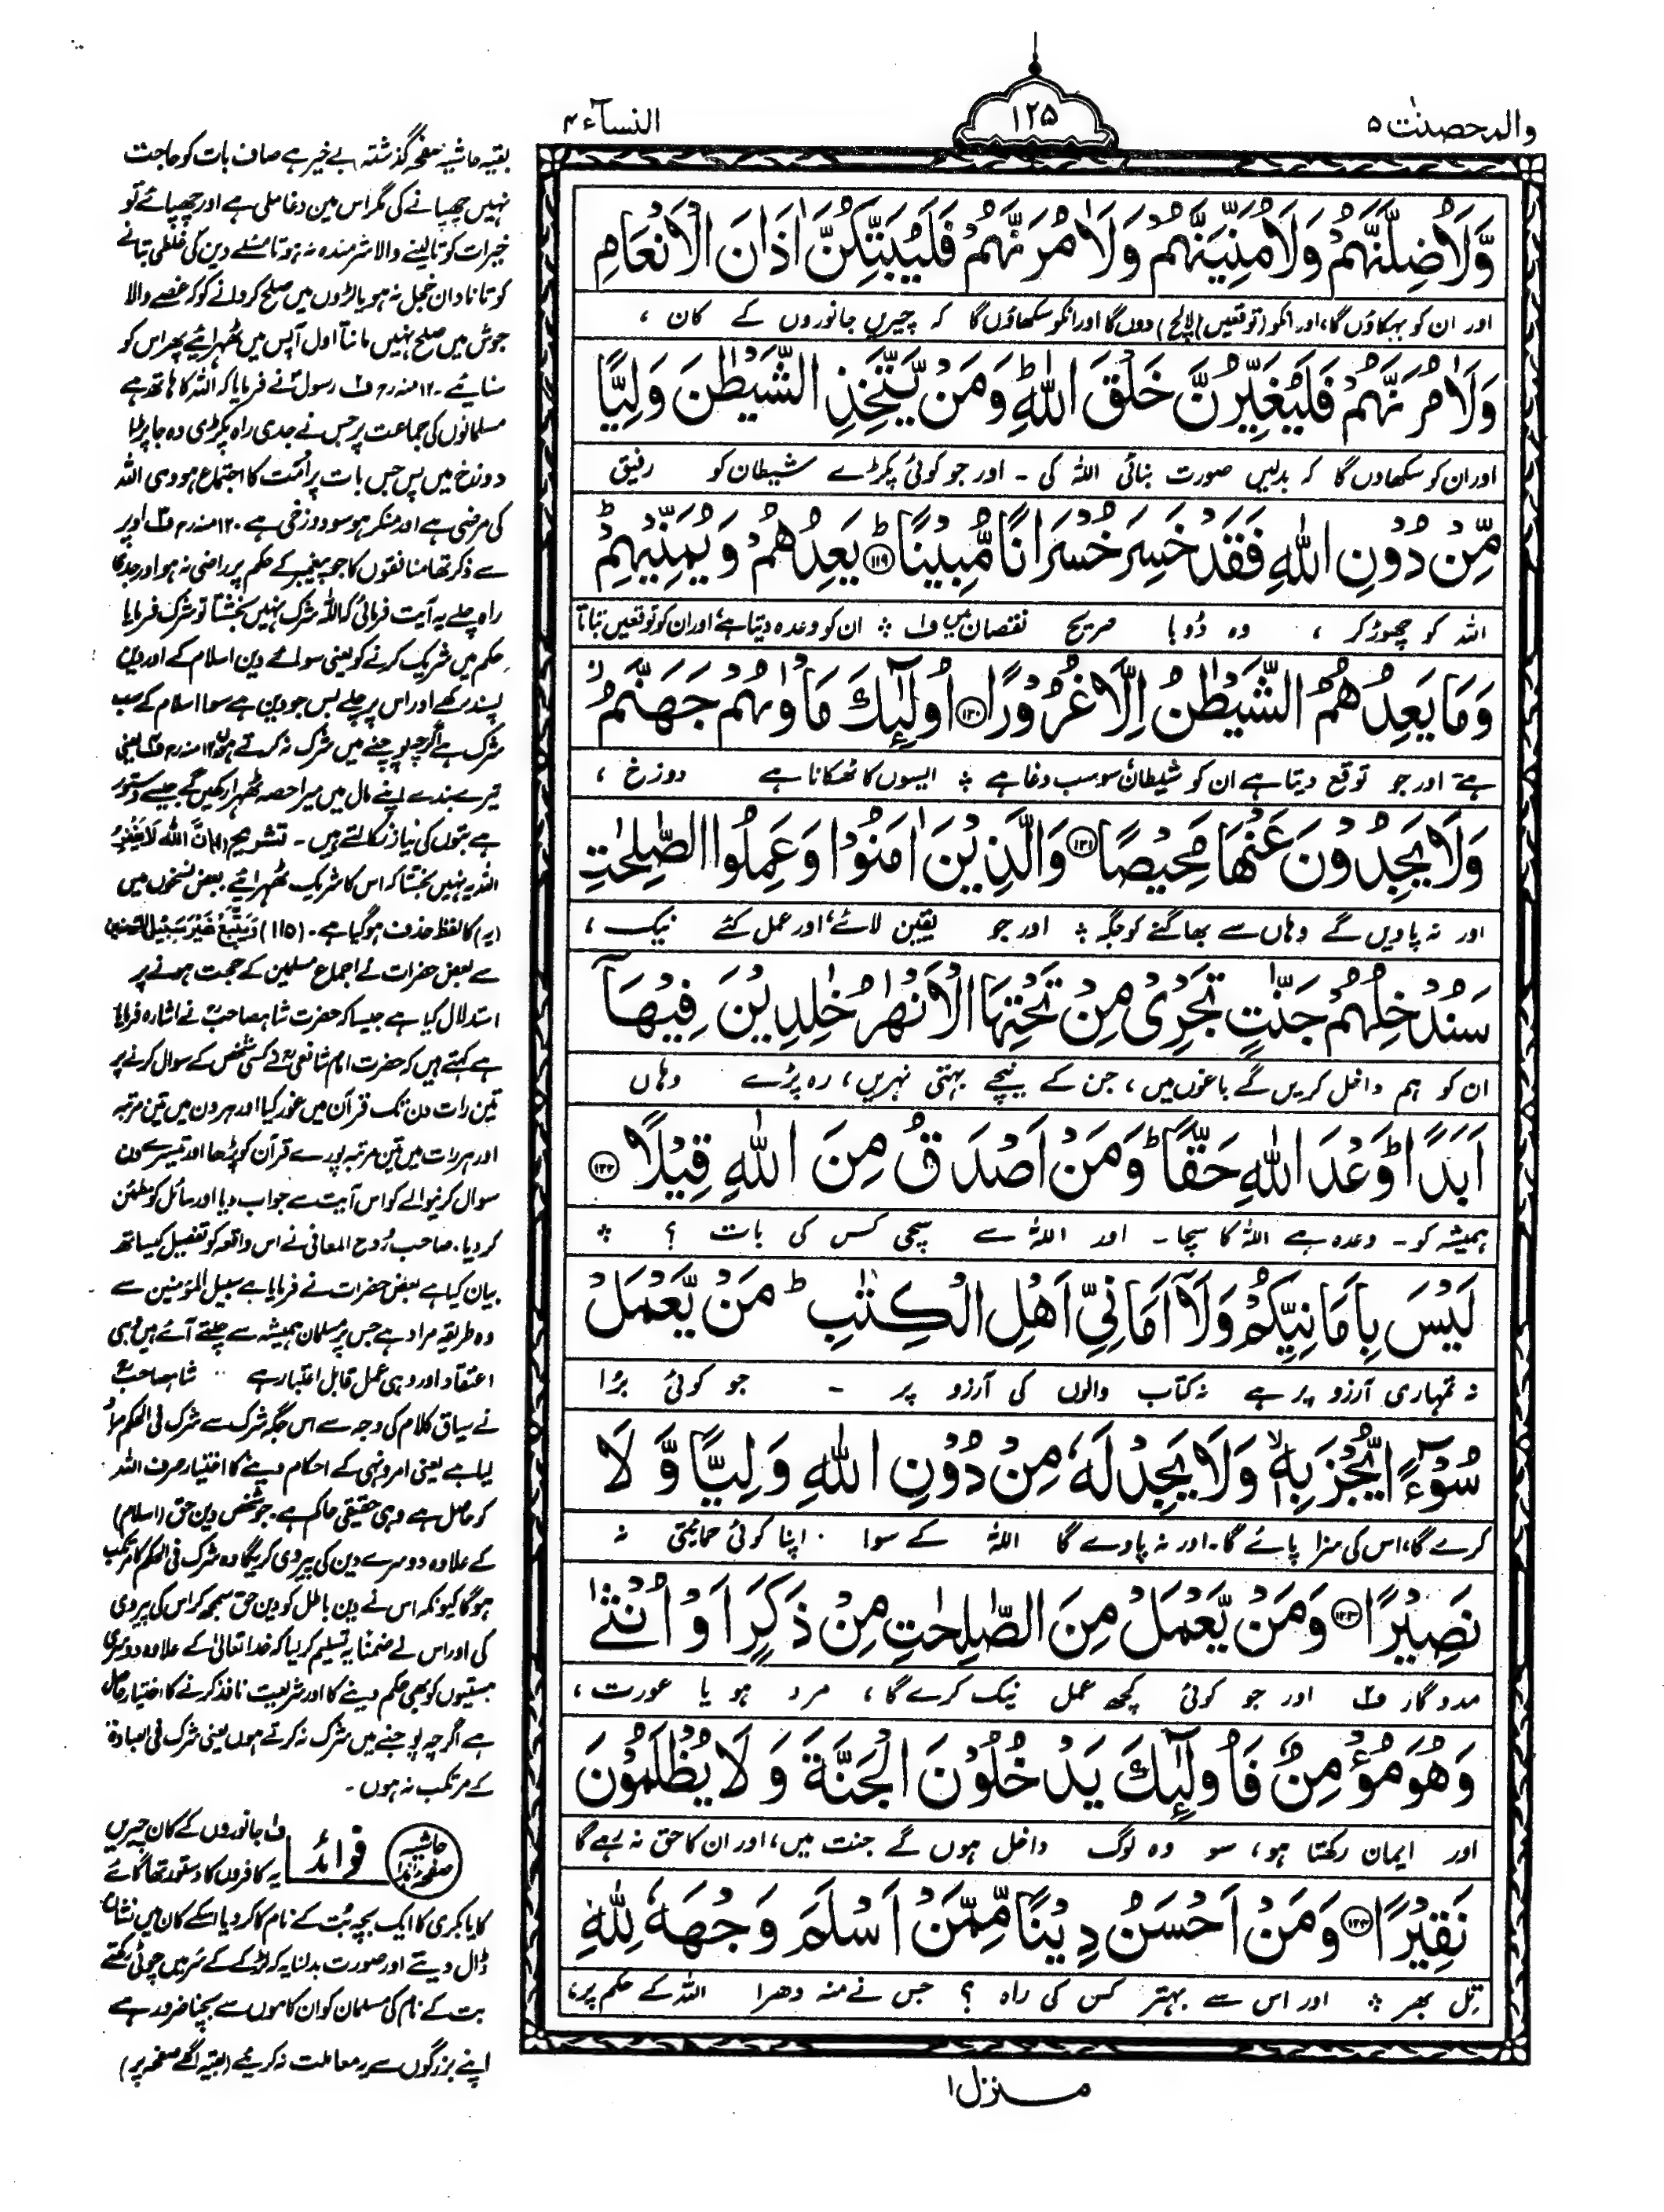 والمحصنٰت ۵
۱۲۵
النسآء ۴
وَّلَاُضِلَّنَّهُمْ وَلَاُمَنِّيَنَّهُمْ وَلَاٰمُرَنَّهُمْ فَلَيُبَتِّكُنَّ اٰذَانَ الْاَنْعَامِ
اور ان کو بہکاؤں گا، اور انکو (توقعیں) (لالچ) دوں گا اور انکو سکھاؤں گا کہ چیریں جانوروں کے کان ،
وَلَاٰمُرَنَّهُمْ فَلَيُغَيِّرُنَّ خَلْقَ اللّٰهِ ؕ وَمَنْ يَّتَّخِذِ الشَّيْطٰنَ وَلِيًّا
اور ان کو سکھاوں گا کہ بدلیں صورت بنائی اللہ کی ۔ اور جو کوئی پکڑے شیطان کو رفیق
مِّنْ دُوْنِ اللّٰهِ فَقَدْ خَسِرَ خُسْرَانًا مُّبِيْنًا ؕ ﴿۱۱۹﴾ يَعِدُهُمْ وَيُمَنِّيْهِمْ ؕ
اللہ کو چھوڑ کر ، وہ ڈوبا صریح نقصان میں ف۱ ؞ ان کو وعدہ دیتا ہے، اور ان کو توقعیں بتاتا
وَمَا يَعِدُهُمُ الشَّيْطٰنُ اِلَّا غُرُوْرًا ﴿۱۲۰﴾ اُولٰٓئِكَ مَاْوٰىهُمْ جَهَنَّمُ ؗ
ہے اور جو توقع دیتا ہے ان کو شیطان سو سب دغا ہے ؞ ایسوں کا ٹھکانا ہے دوزخ ،
وَلَا يَجِدُوْنَ عَنْهَا مَحِيْصًا ﴿۱۲۱﴾ وَالَّذِيْنَ اٰمَنُوْا وَعَمِلُوا الصّٰلِحٰتِ
اور نہ پاویں گے وہاں سے بھاگنے کو جگہ ؞ اور جو یقین لائے، اور عمل کئے نیک ،
سَنُدْخِلُهُمْ جَنّٰتٍ تَجْرِىْ مِنْ تَحْتِهَا الْاَنْهٰرُ خٰلِدِيْنَ فِيْهَآ
ان کو ہم داخل کریں گے باغوں میں ، جن کے نیچے بہتی نہریں، رہ پڑے وہاں
اَبَدًا ؕ وَعْدَ اللّٰهِ حَقًّا ؕ وَمَنْ اَصْدَقُ مِنَ اللّٰهِ قِيْلًا ﴿۱۲۲﴾
ہمیشہ کو ۔ وعدہ ہے اللہ کا سچا ۔ اور اللہ سے سچی کس کی بات ؟ ؞
لَيْسَ بِاَمَانِيِّكُمْ وَلَآ اَمَانِيِّ اَهْلِ الْكِتٰبِ ؕ مَنْ يَّعْمَلْ
نہ تمہاری آرزو پر ہے نہ کتاب والوں کی آرزو پر ۔ جو کوئی برا
سُوْٓءًا يُّجْزَ بِهٖ ۙ وَلَا يَجِدْ لَهٗ مِنْ دُوْنِ اللّٰهِ وَلِيًّا وَّلَا
کرے گا، اس کی سزا پائے گا، اور نہ پاوے گا اللہ کے سوا اپنا کوئی حمایتی نہ
نَصِيْرًا ﴿۱۲۳﴾ وَمَنْ يَّعْمَلْ مِنَ الصّٰلِحٰتِ مِنْ ذَكَرٍ اَوْ اُنْثٰى
مددگار ف۲ اور جو کوئی کچھ عمل نیک کرے گا ، مرد ہو یا عورت ،
وَهُوَ مُؤْمِنٌ فَاُولٰٓئِكَ يَدْخُلُوْنَ الْجَنَّةَ وَلَا يُظْلَمُوْنَ
اور ایمان رکھتا ہو، سو وہ لوگ داخل ہوں گے جنت میں، اور ان کا حق نہ رہے گا
نَقِيْرًا ﴿۱۲۴﴾ وَمَنْ اَحْسَنُ دِيْنًا مِّمَّنْ اَسْلَمَ وَجْهَهٗ لِلّٰهِ
تِل بھر ؞ اور اس سے بہتر کس کی راہ ؟ جس نے منہ دھرا اللہ کے حکم پر،
منزل ۱
بقیہ حاشیہ صفحہ گذشتہ) بے خیر ہے صاف بات کو حاجت
نہیں چھپانے کی مگر اس میں دغا ملی ہے اور چھپائے تو
خیرات کو تا لینے والا شرمندہ نہ ہو تا مسئلے دین کی غلطی بتانے
کو تا نادان خجل نہ ہو یا لڑوں میں صلح کروانے کو کہ غصے والا
جوش میں صلح نہیں مانتا اول آپس میں ٹھہرائیے پھر اس کو
سنائیے ۔ ۱۲ منہ رح ف۲ رسولؐ نے فرمایا کہ اللہ کا ہاتھ ہے
مسلمانوں کی جماعت پر جس نے جدی راہ پکڑی وہ جا پڑا
دوزخ میں پس جس بات پر امت کا اجتماع ہو وہی اللہ
کی مرضی ہے اور منکر ہو سو دوزخی ہے ۔ ۱۲ منہ رح ف۳ اوپر
سے ذکر تھا منافقوں کا جو پیغمبر کے حکم پر راضی نہ ہو اور جدی
راہ چلے یہ آیت فرمائی کہ اللہ شرک نہیں بخشتا تو شرک فرمایا
حکم میں شریک کرنے کو یعنی سوائے دین اسلام کے اور دین
پسند رکھے اور اس پر چلے بس جو دین ہے سوا اسلام کے سب
شرک ہے اگرچہ پوجنے میں شرک نہ کرتے ہوں ۱۲ منہ رح ف۴ یعنی
تیرے بندے اپنے مال میں میرا حصہ ٹھہرا رکھیں گے جیسے دستور
ہے بتوں کی نیاز نکالتے ہیں ۔ تشریح (اِنَّ اللّٰهَ لَا يَغْفِرُ
اللہ یہ نہیں بخشتا کہ اس کا شریک ٹھہرائیے بعض نسخوں میں
(یہ) کا لفظ حذف ہو گیا ہے ۔ (۱۱۵) وَيَتَّبِعْ غَيْرَ سَبِيْلِ الْمُؤْمِنِيْنَ
سے بعض حضرات نے اجماع مسلمین کے حجت ہونے پر
استدلال کیا ہے جیسا کہ حضرت شاہ صاحبؒ نے اشارہ فرمایا
ہے کہتے ہیں کہ حضرت امام شافعیؒ نے کسی شخص کے سوال کرنے پر
تین رات دن تک قرآن میں غور کیا اور ہر دن میں تین مرتبہ
اور ہر رات میں تین مرتبہ پورے قرآن کو پڑھا اور تیسرے دن
سوال کرنیوالے کو اس آیت سے جواب دیا اور سائل کو مطمئن
کر دیا ۔ صاحب رُوح المعانی نے اس واقعہ کو تفصیل کیساتھ
بیان کیا ہے بعض حضرات نے فرمایا ہے سبیل المؤمنین سے
وہ طریقہ مراد ہے جس پر مسلمان ہمیشہ سے چلتے آئے ہیں وہی
اعتقاد اور وہی عمل قابل اعتبار ہے شاہ صاحبؒ
نے سیاق کلام کی وجہ سے اس جگہ شرک سے شرک فی الحکم مراد
لیا ہے یعنی امر و نہی کے احکام دینے کا اختیار صرف اللہ
کو حاصل ہے وہی حقیقی حاکم ہے ۔ جو شخص دین حق (اسلام)
کے علاوہ دوسرے دین کی پیروی کریگا وہ شرک فی الحکم کا مرتکب
ہوگا کیونکہ اس نے دین باطل کو دین حق سمجھ کر اس کی پیروی
کی اور اس نے ضمنًا یہ تسلیم کر لیا کہ خدا تعالیٰ کے علاوہ دوسری
ہستیوں کو بھی حکم دینے کا اور شریعت نافذ کرنے کا اختیار حاصل
ہے اگرچہ پوجنے میں شرک نہ کرتے ہوں یعنی شرک فی العبادۃ
کے مرتکب نہ ہوں ۔
حاشیہ صفحہ ہٰذا
فوائد
ف۱ جانوروں کے کان چیریں
یہ کافروں کا دستور تھا گائے
کا یا بکری کا ایک بچہ بُت کے نام کا کر دیا اسکے کان میں نشان
ڈال دیتے اور صورت بدلنا یہ کہ لڑکے کے سر میں چوٹی رکھتے
بت کے نام کی مسلمان کو ان کاموں سے بچنا ضرور ہے
اپنے بزرگوں سے یہ معاملت نہ کریئے (بقیہ اگلے صفحہ پر)